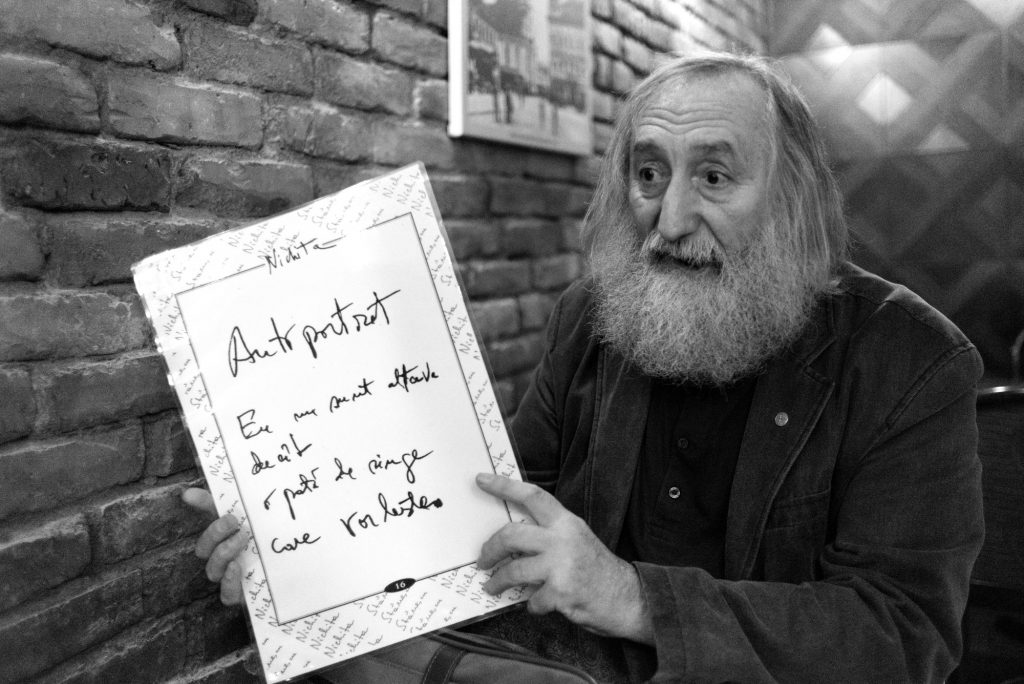 Nichita
Autoportret
Eu nu sunt altceva
decât
o pată de sînge
care vorbește.
16